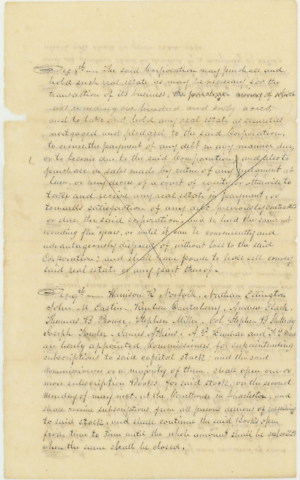 Sec 8th — The said Corporation may purchase and
hold such real estate as may be necessary for the
transaction of its business,
not exceeding one hundred and sixty acres,
and to take and hold any real estate as security
mortgaged and pledged to the said Corporation
to secure the payment of any debt in any manner due
or to become due to the said Corporation, and also to
purchase on sales made by virtue of any judgment at
law, or any decree of a court of equity, otherwise to
take and receive any real estate in payment, or
towards satisfaction of any debt previously contracted
or due the said corporation, and to hold the same not
exceeding five years, or until it can be conveniently and
advantageously disposed of without loss to the said
Corporation; and shall have power to sell and convey
said real estate or any part thereof.
Harrison Norfolk, Nathan Ellington
John M. Eastin, Reuben Canterbury,
Thomas B. Brown, Stephen Stephen
Joseph
are hereby appointed Commissioners for superintending
subscriptions to said capital stock and the said
Commissioners or a majority of them, shall open one or
more subscription Books for said stock, on the second
Monday of may next, at the Courthouse in Charleston, and
shall receive subscriptions from all persons desirous of subscribing
to said stock, and shall continue the said Books open
from time to time until the whole amount shall be subscribed
when the same shall be closed.